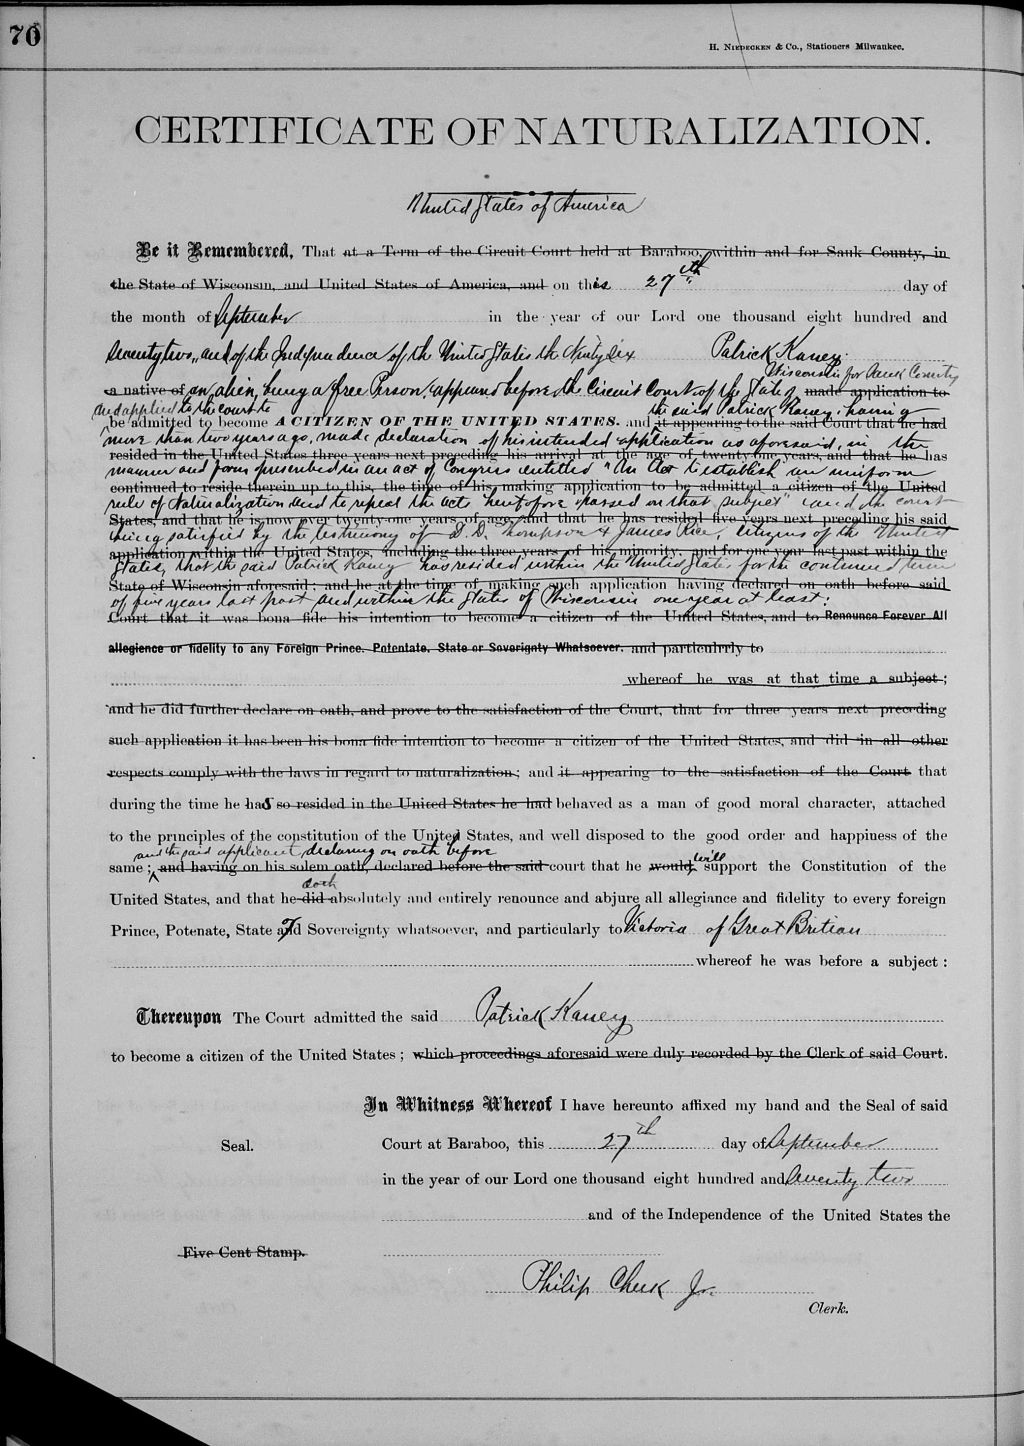 70
H. NIEDECKEN & Co., Stationers Milwaukee.
CERTIFICATE OF NATURALIZATION.
United States of America
Be it Remembered, That at a Term of the Circuit Court held at Baraboo, within and for Sauk County, in
the State of Wisconsin, and United States of America, and on this 27th day of
the month of September in the year of our Lord one thousand eight hundred and
Seventy two, and of the Independence of the United States the Ninty six Patrick Kaney
Wisconsin for Sauk County
a native of an alien, being a free Person, appeared before the Circuit Court of the State of made application to
and applied to the court to the said Patrick Kaney, having
be admitted to become A CITIZEN OF THE UNITED STATES. and it appearing to the said Court that he had
more than two years ago, made declaration of his intended application as aforesaid, in the
resided in the United States three years next preceding his arrival at the age of twenty-one years, and that he has
manner and form prescribed in an act of Congress entitled "An Act to establish an uniform
continued to reside therein up to this, the time of his making application to be admitted a citizen of the United
rule of Naturalization and to repeal the acts heretofore passed on that subject" and the court
States, and that he is now over twenty-one years of age, and that he has resided five years next preceding his said
being satisfied by the testimony of D. D. Thompson & James Rice, citizens of the United
application within the United States, including the three years of his minority, and for one year last past within the
States, that the said Patrick Kaney has resided within the United States for the continued term
State of Wisconsin aforesaid; and he at the time of making such application having declared on oath before said
of five years last past and within the State of Wisconsin one year at least:
Court that it was bona fide his intention to become a citizen of the United States, and to Renounce Forever All
allegience or fidelity to any Foreign Prince, Potentate, State or Soverignty Whatsoever, and particulrrly to
whereof he was at that time a subject;
and he did further declare on oath, and prove to the satisfaction of the Court, that for three years next preceding
such application it has been his bona fide intention to become a citizen of the United States, and did in all other
respects comply with the laws in regard to naturalization; and it appearing to the satisfaction of the Court that
during the time he has so resided in the United States he had behaved as a man of good moral character, attached
to the principles of the constitution of the United States, and well disposed to the good order and happiness of the
and the said applicant declaring on oath before will
same; and having on his solem oath, declared before the said court that he would support the Constitution of the
doth
United States, and that he did absolutely and entirely renounce and abjure all allegiance and fidelity to every foreign
Prince, Potenate, State or Sovereignty whatsoever, and particularly to Victoria of Great Britian
whereof he was before a subject:
Thereupon The Court admitted the said Patrick Kaney
to become a citizen of the United States; which proceedings aforesaid were duly recorded by the Clerk of said Court.
In Whitness Whereof I have hereunto affixed my hand and the Seal of said
Seal. Court at Baraboo, this 27th day of September
in the year of our Lord one thousand eight hundred and Seventy two
and of the Independence of the United States the
Five Cent Stamp.
Philip Cheek Jr.
Clerk.